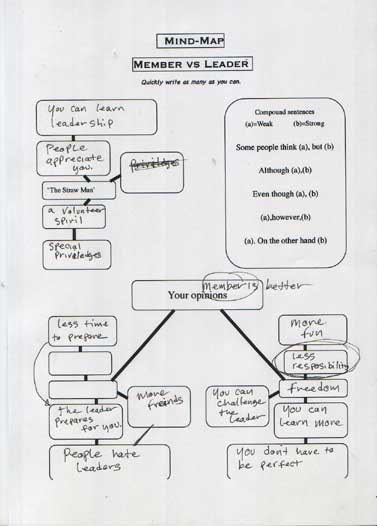 MIND-MAP
MEMBER VS LEADER
Quickly write as many as you can.
You can learn
leadership
People
appreciate
you.
Priviledges
'The Straw Man'
a volunteer
spirit
Special
Priviledges
Compound sentences
(a)=Weak (b)=Strong
Some people think (a), but (b)
Although (a),(b)
Even though (a), (b)
(a),however,(b)
(a). On the other hand (b)
Member is better
Your opinions
less time
to prepare
the leader
prepares
for you.
More
friends
People hate
leaders
more
fun
less
resposibility
freedom
You can
challenge
the
leader
You can
learn more
You don't have to
be perfect